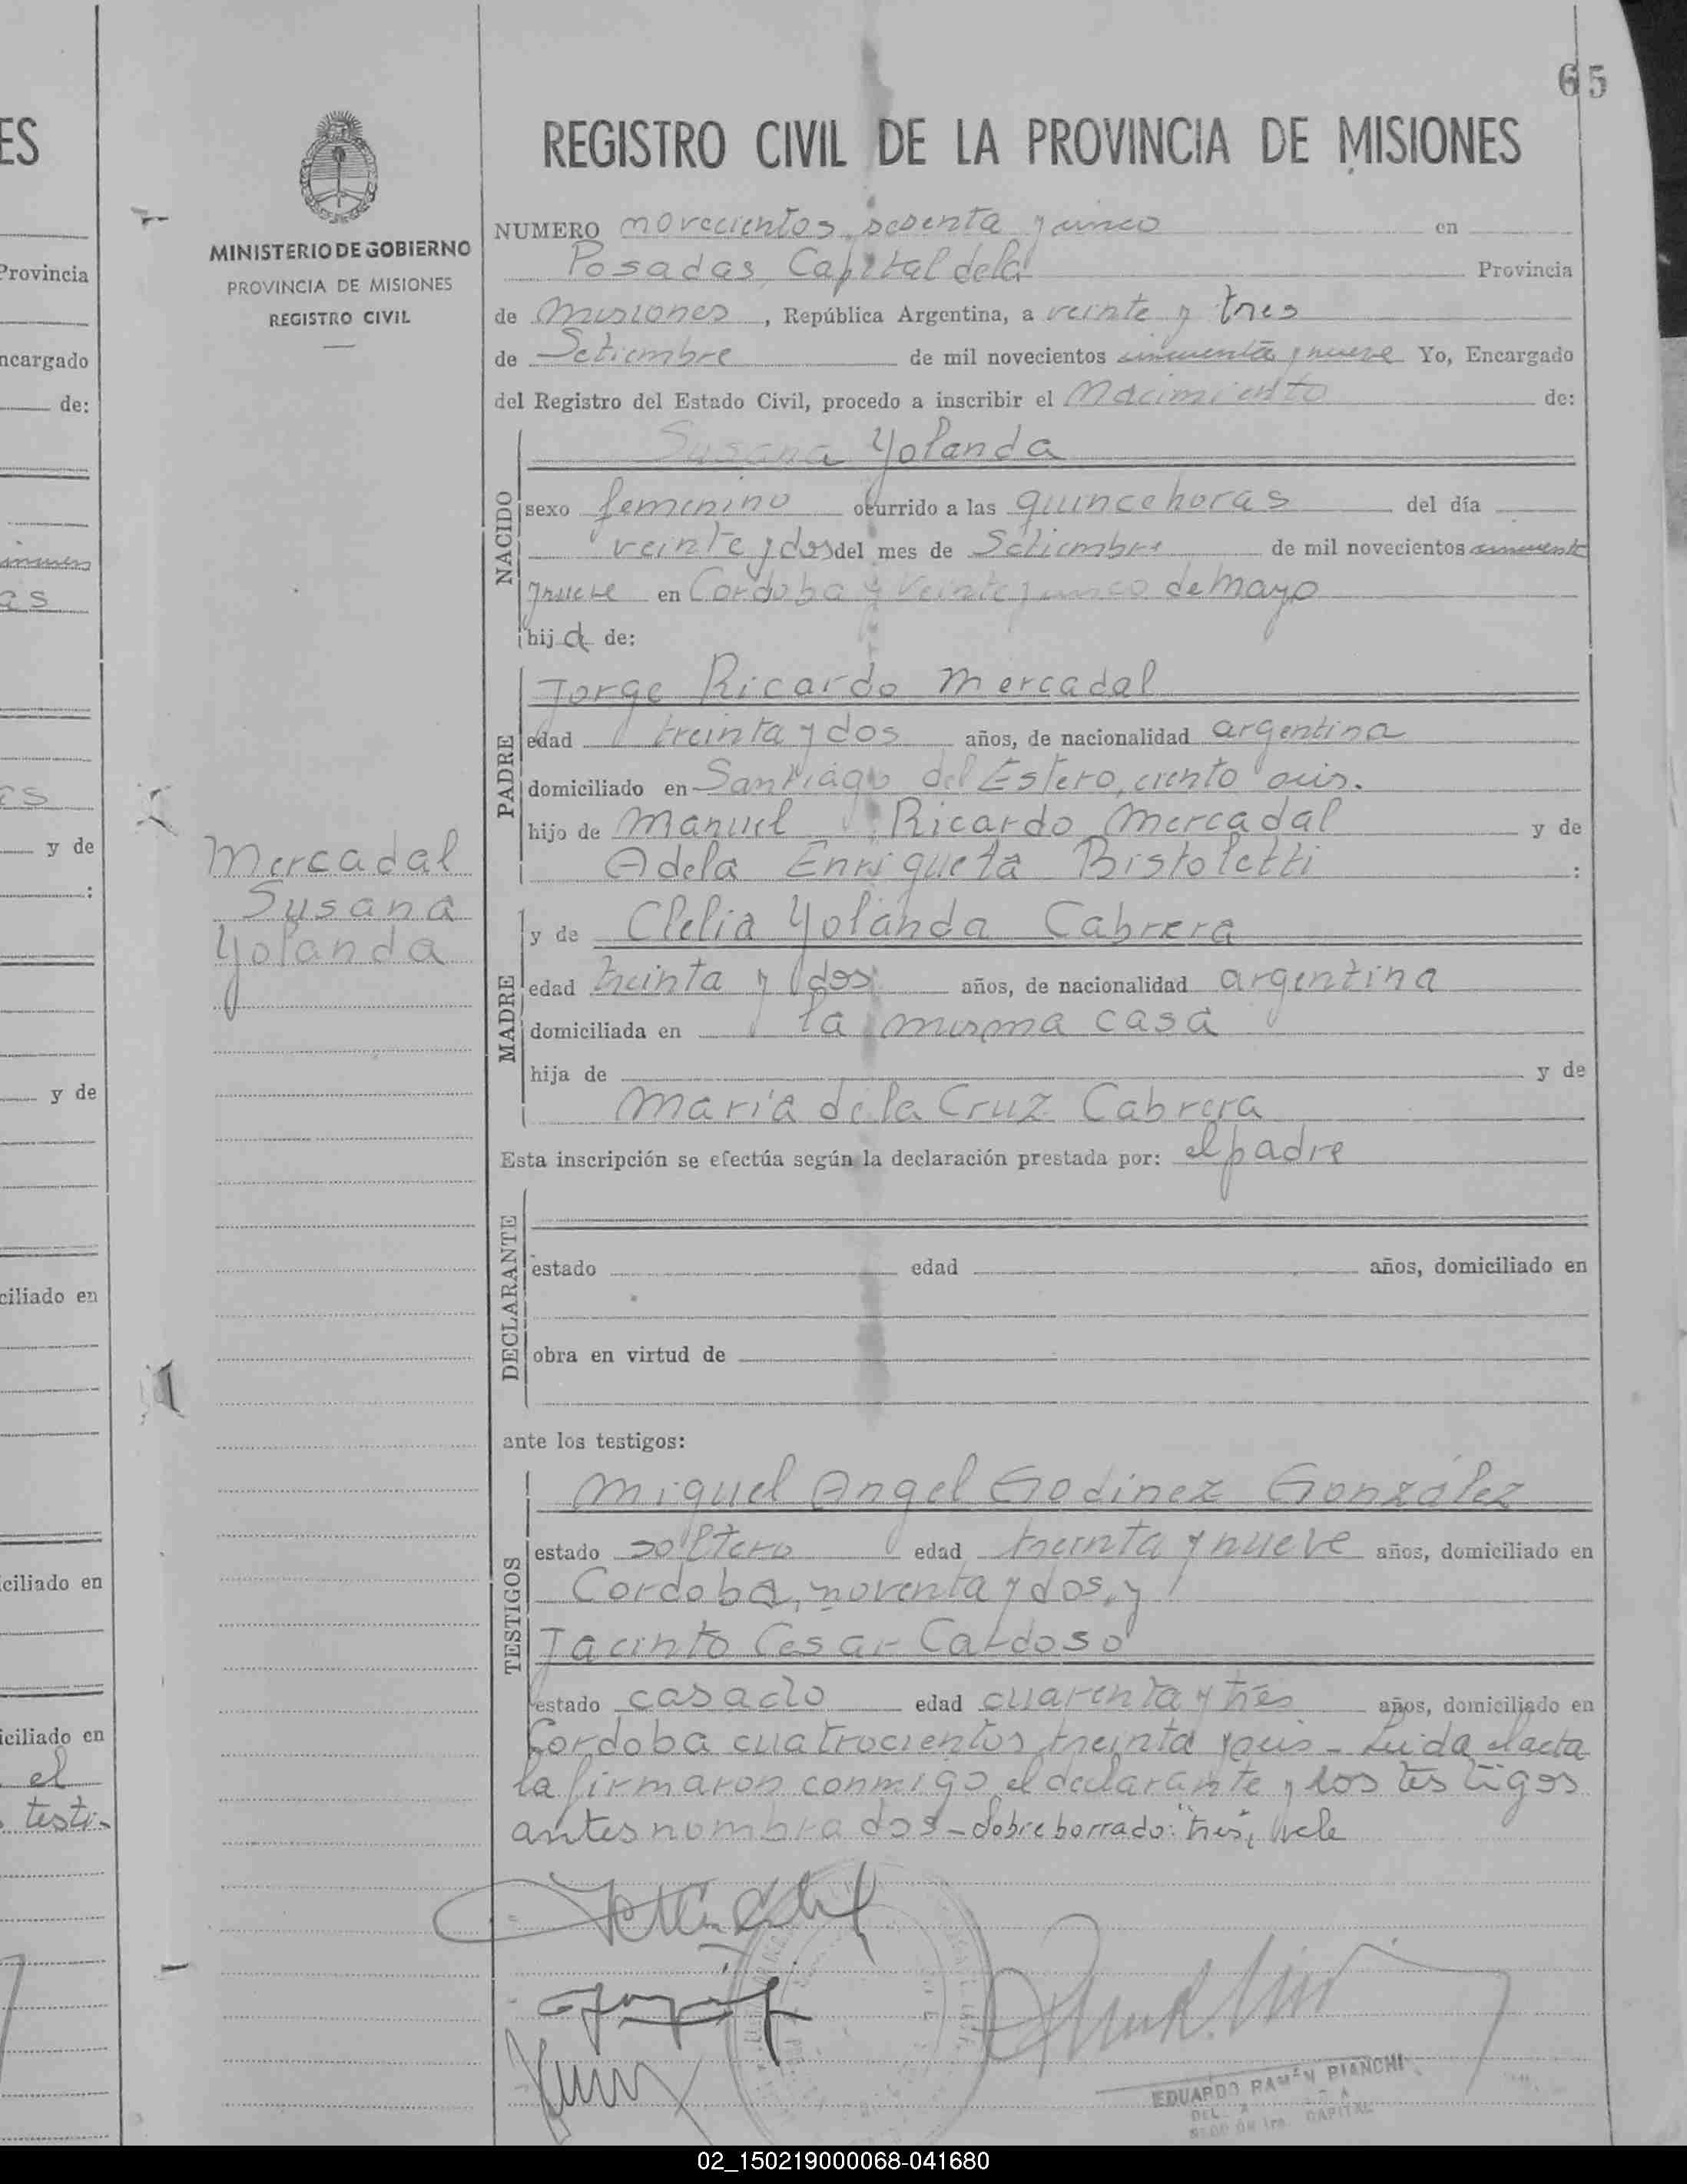 65
REGISTRO CIVIL DE LA PROVINCIA DE MISIONES
MINISTERIO DE GOBIERNO
PROVINCIA DE MISIONES
REGISTRO CIVIL
Mercadal
Susana
Yolanda
NUMERO novecientos sesenta y cinco en
Posadas, Capital de la Provincia
de Misiones, República Argentina, a veinte y tres
de Setiembre de mil novecientos cincuenta y nueve Yo, Encargado
del Registro del Estado Civil, procedo a inscribir el Nacimiento de:
NACIDO
Susana Yolanda
sexo femenino ocurrido a las quince horas del día
veinte y dos del mes de Setiembre de mil novecientos cincuenta
y nueve en Cordoba y Veinte y cinco de Mayo
hija de:
PADRE
Jorge Ricardo Mercadal
edad treinta y dos años, de nacionalidad argentina
domiciliado en Santiago del Estero, ciento seis.
hijo de Manuel Ricardo Mercadal y de
Adela Enriqueta Bistoletti :
MADRE
y de Clelia Yolanda Cabrera
edad treinta y dos años, de nacionalidad argentina
domiciliada en la misma casa
hija de y de
María de la Cruz Cabrera
Esta inscripción se efectúa según la declaración prestada por: el padre
DECLARANTE
estado edad años, domiciliado en
obra en virtud de
ante los testigos:
TESTIGOS
Miguel Angel Godinez González
estado soltero edad treinta y nueve años, domiciliado en
Cordoba, noventa y dos, y
Jacinto Cesar Cardoso
estado casado edad cuarenta y tres años, domiciliado en
Cordoba cuatrocientos treinta y seis - Leida el acta
la firmaron conmigo el declarante y los testigos
antes nombrados - Sobre borrado: "tres", vale
EDUARDO RAMÓN PIANCHI
CAPITAL
02_150219000068-041680
ES
Provincia
ncargado
de:
as
y de
:
y de
ciliado en
ciliado en
iciliado en
el
testi-